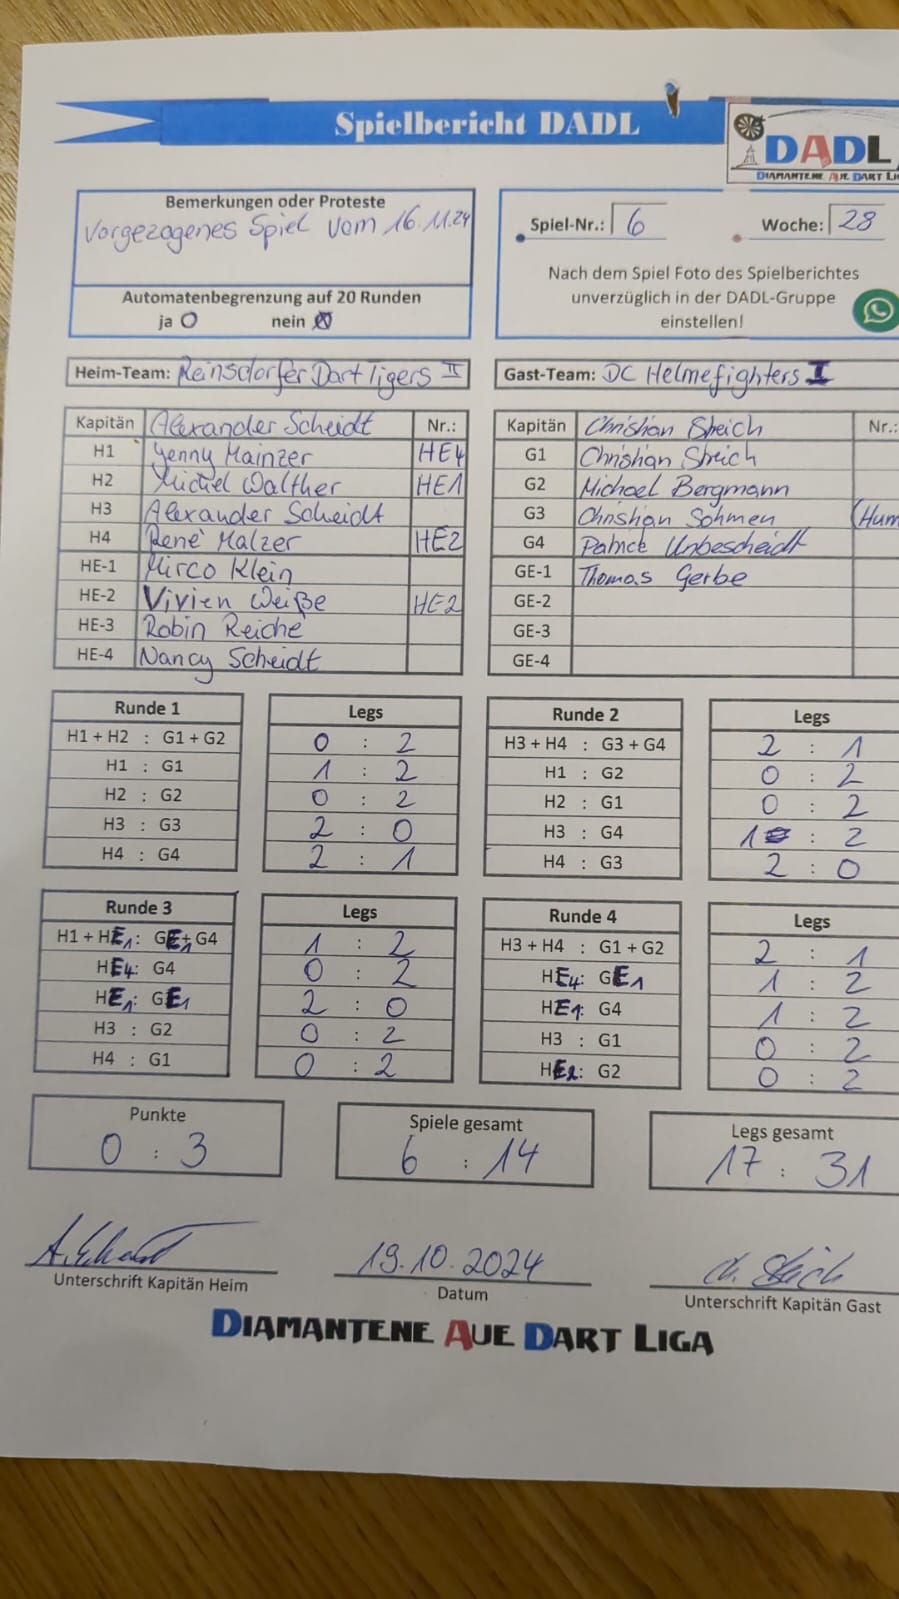 Spielbericht DADL
DADL
DIAMANTENE AUE DART LI
Bemerkungen oder Proteste
Vorgezogenes Spiel vom 16.11.24
Automatenbegrenzung auf 20 Runden
ja O nein
Spiel-Nr.: 6 Woche: 28
Nach dem Spiel Foto des Spielberichtes
unverzüglich in der DADL-Gruppe
einstellen!
Heim-Team: Reinsdorfer Dart Tigers II
Gast-Team: DC Helmefighters I
Kapitän Alexander Scheidt Nr.:
H1 Jenny Mainzer HE4
H2 Michel Walther HE1
H3 Alexander Scheidt
H4 René Malzer HE2
HE-1 Mirco Klein
HE-2 Vivien Weiße HE2
HE-3 Robin Reiche
HE-4 Nancy Scheidt
Kapitän Christian Streich Nr.:
G1 Christian Streich
G2 Michael Bergmann
G3 Christian Sohmen (Hum
G4 Patrick Unbescheidt
GE-1 Thomas Gerbe
GE-2
GE-3
GE-4
Runde 1 Legs
H1 + H2 : G1 + G2 0 : 2
H1 : G1 1 : 2
H2 : G2 0 : 2
H3 : G3 2 : 0
H4 : G4 2 : 1
Runde 2 Legs
H3 + H4 : G3 + G4 2 : 1
H1 : G2 0 : 2
H2 : G1 0 : 2
H3 : G4 1 : 2
H4 : G3 2 : 0
Runde 3 Legs
H1 + HE1: GE1+ G4 1 : 2
HE4: G4 0 : 2
HE1: GE1 2 : 0
H3 : G2 0 : 2
H4 : G1 0 : 2
Runde 4 Legs
H3 + H4 : G1 + G2 2 : 1
HE4: GE1 1 : 2
HE1: G4 1 : 2
H3 : G1 0 : 2
HE2: G2 0 : 2
Punkte
0 : 3
Spiele gesamt
6 : 14
Legs gesamt
17 : 31
19.10.2024
Ch. Streich
Unterschrift Kapitän Heim
Datum
Unterschrift Kapitän Gast
DIAMANTENE AUE DART LIGA